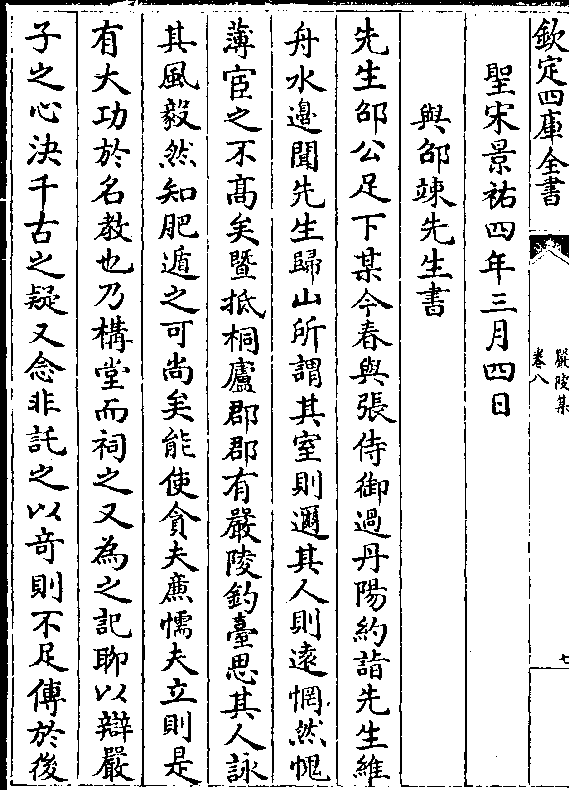 欽定四庫全書
嚴陵集
卷八
七
聖宋景祐四年三月四日
與邵竦先生書
先生邵公足下某今春與張侍御過丹陽約詣先生維
舟水邊聞先生歸山所謂其室則邇其人則遠惘然愧
薄宦之不髙矣暨抵桐廬郡郡有嚴陵釣臺思其人詠
其風毅然知肥遁之可尚矣能使貪夫亷懦夫立則是
有大功於名教也乃構堂而祠之又為之記聊以辯嚴
子之心決千古之疑又念非託之以竒則不足傳於後